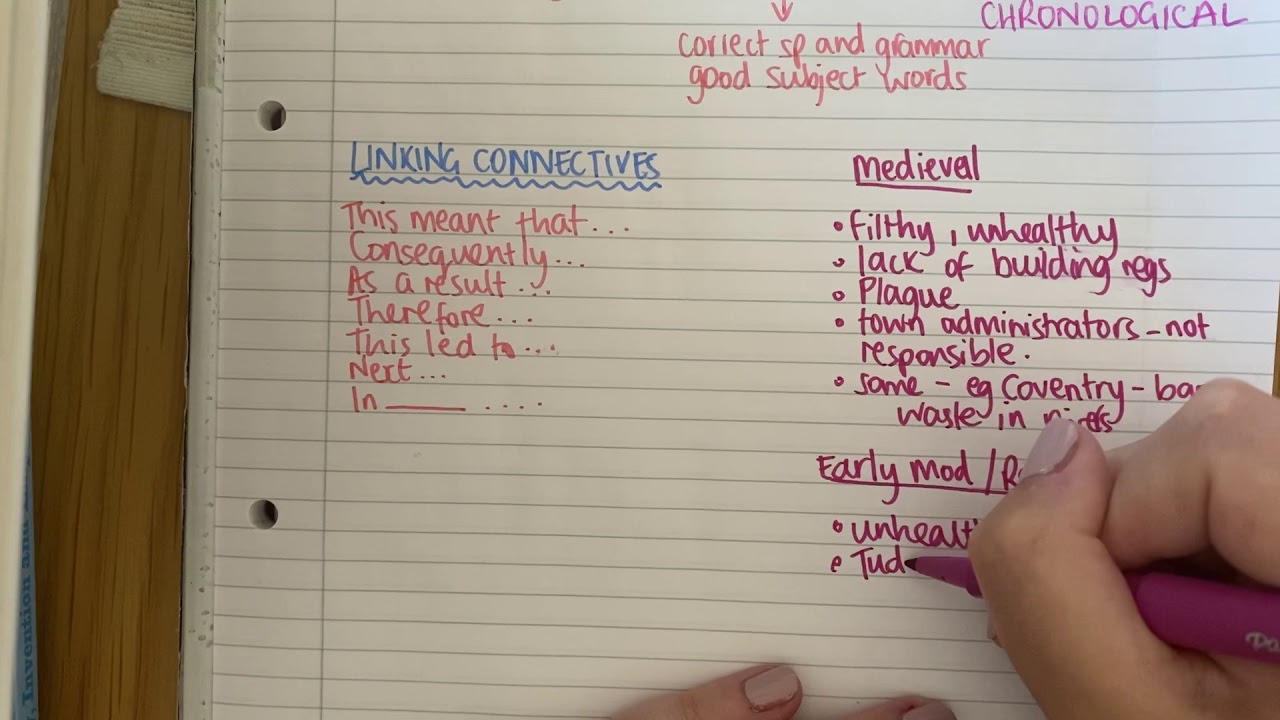 CHRONOLOGICAL
correct sp and grammar
good subject words
LINKING CONNECTIVES
This meant that...
Consequently...
As a result...
Therefore...
This led to...
Next...
In ______ ....
Medieval
• Filthy, unhealthy
• lack of building regs
• Plague
• town administrators - not
responsible.
• some - eg Coventry -
waste in
Early Mod /
•
• Tud
Invention an